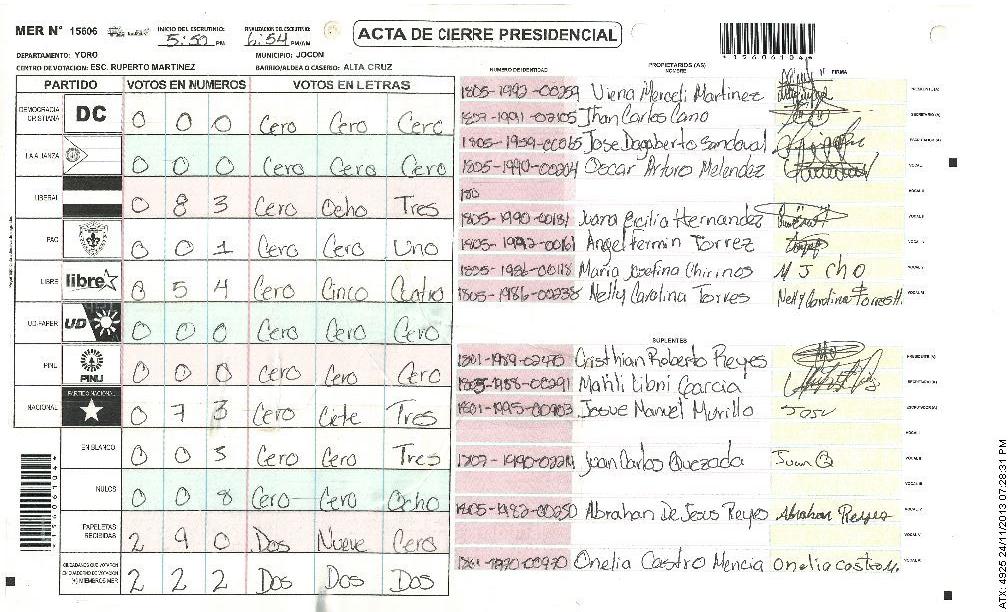 MER N° 15606 INICIO DEL ESCRUTINIO: 5:50 PM FINALIZACION DEL ESCRUTINIO: 6:54 PM/AM
ACTA DE CIERRE PRESIDENCIAL
*15606104*
DEPARTAMENTO: YORO MUNICIPIO: JOCON
CENTRO DE VOTACION: ESC. RUPERTO MARTINEZ BARRIO/ALDEA O CASERIO: ALTA CRUZ
PARTIDO VOTOS EN NUMEROS VOTOS EN LETRAS
DEMOCRACIA CRISTIANA DC 0 0 0 Cero Cero Cero
LA ALIANZA 0 0 0 Cero Cero Cero
LIBERAL 0 8 3 Cero Ocho Tres
PAC 0 0 1 Cero Cero Uno
LIBRE libre 0 5 4 Cero Cinco Cuatro
UD-FAPER UD 0 0 0 Cero Cero Cero
PINU PINU 0 0 0 Cero Cero Cero
NACIONAL PARTIDO NACIONAL 0 7 3 Cero Ciete Tres
EN BLANCO 0 0 3 Cero Cero Tres
NULOS 0 0 8 Cero Cero Ocho
PAPELETAS RECIBIDAS 2 9 0 Dos Nueve Cero
CIUDADANOS QUE VOTARON EN CUADERNO DE VOTACION (+) MIEMBROS MER 2 2 2 Dos Dos Dos
*15606104*
NUMERO DE IDENTIDAD PROPIETARIOS (AS) NOMBRE FIRMA
1805-1992-00259 Martinez PRESIDENTE (A)
Jhan Carlos Cano SECRETARIO (A)
1805-1959-00065 Jose Dagoberto Sandoval ESCRUTADOR (A)
1805-1990-00204 Oscar Arturo Melendez VOCAL I
180 VOCAL II
1805-1990-00131 Juana Cecilia Hernandez
1805-1992-00161 Angel fermin Torrez
Maria Josefina Chirinos M J cho
1805-1986-00238 Nelly Carolina Torres Nelly Carolina Torres H.
SUPLENTES
1801-1989-02470 Cristhian Roberto Reyes PRESIDENTE (A)
1805-1988-00291 Libni Garcia SECRETARIO (A)
Josue Manuel Murillo Josu ESCRUTADOR (A)
VOCAL I
Juan Carlos Quezada Juan Q VOCAL II
VOCAL III
1805-1982-00250 Abrahan De Jesus Reyes Abrahan Reyes
1801-1970-00970 Onelia Castro Mencia onelia castro M.
ATX: 4925 24/11/2013 07:28:31 PM